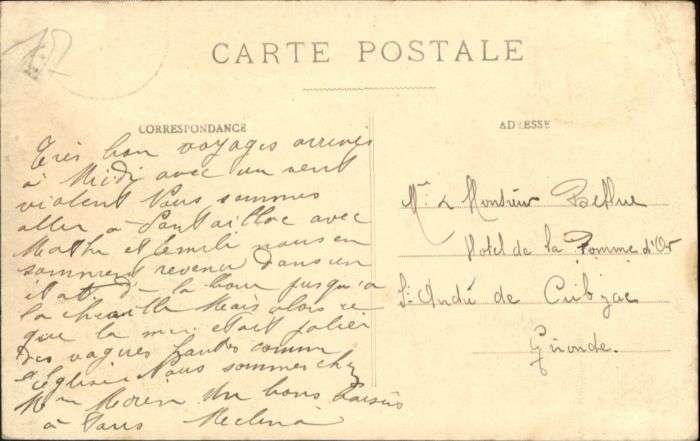 12
CARTE POSTALE
CORRESPONDANCE
ADRESSE
Très bon voyages arrivés
à Midi avec un vent
violent Nous sommes
aller a Pontaillac avec
Mathe et famille nous en
sommes revenu dans un
état de la boue jusqu'a
la cheville Mais alors ce
que la mer etait jolier
Des vagues hautes comme
l'Eglise Nous sommes chez
Mme Moren Un bons baisers
à Tous Melina
Mr & Monsieur
Hotel de la Pomme d'Or
St André de Cubzac
Gironde.